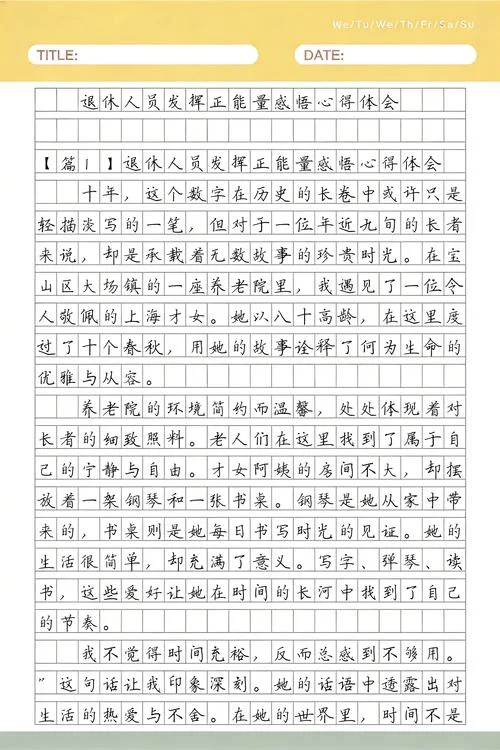 We/Tu/We/Th/Fr/Sa/Su
TITLE:
DATE:
退休人员发挥正能量感悟心得体会
【篇1】退休人员发挥正能量感悟心得体会
十年，这个数字在历史的长卷中或许只是
轻描淡写的一笔，但对于一位年近九旬的长者
来说，却是承载着无数故事的珍贵时光。在宝
山区大场镇的一座养老院里，我遇见了一位令
人敬佩的上海才女。她以八十高龄，在这里度
过了十个春秋，用她的故事诠释了何为生命的
优雅与从容。
养老院的环境简约而温馨，处处体现着对
长者的细致照料。老人们在这里找到了属于自
己的宁静与自由。才女阿姨的房间不大，却摆
放着一架钢琴和一张书桌。钢琴是她从家中带
来的，书桌则是她每日书写时光的见证。她的
生活很简单，却充满了意义。写字、弹琴、读
书，这些爱好让她在时间的长河中找到了自己
的节奏。
我不觉得时间充裕，反而总感到不够用。
”这句话让我印象深刻。她的话语中透露出对
生活的热爱与不舍。在她的世界里，时间不是